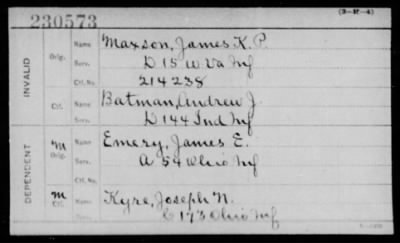 (3-M-4)
230573
INVALID
Orig.
Name
Maxson, James K. P.
Serv.
D 15 W Va Inf
Ctf. No.
214238
Ctf.
Name
Batman, Andrew J.
Serv.
D 144 Ind Inf
DEPENDENT
M
Orig.
Name
Emery, James E.
Serv.
A 54 Ohio Inf
Ctf. No.
M
Ctf.
Name
Kyre, Joseph N.
Serv.
C 173 Ohio Inf